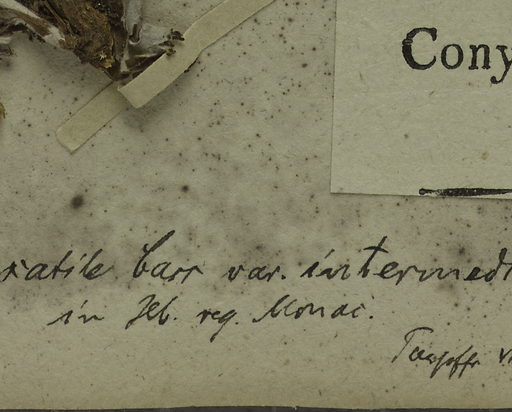 Cony
xatile Carr var. intermedi
in Hb. reg. Monac.